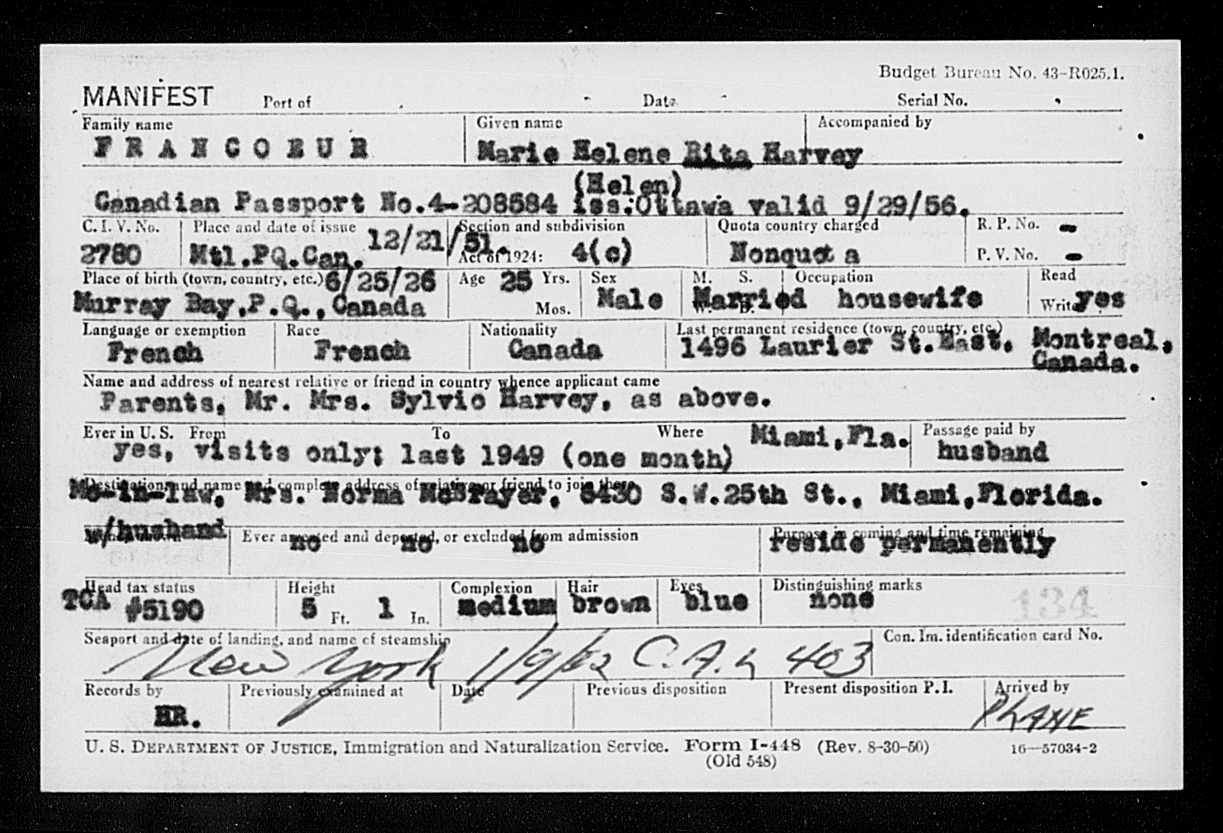 Budget Bureau No. 43-R025.1.
MANIFEST Port of Date Serial No.
Family name Given name Accompanied by
FRANCOEUR Marie Helene Rita Harvey
(Helen)
Canadian Passport No.4-208584 iss.Ottawa valid 9/29/56.
C. I. V. No. Place and date of issue Section and subdivision Quota country charged R. P. No. -
2780 Mtl.PQ.Can. 12/21/51. Act of 1924: 4(c) Nonquota P. V. No. -
Place of birth (town, country, etc.) 6/25/26 Age 25 Yrs. Sex M. S. Occupation Read
Murray Bay,P.Q.,Canada Mos. Male Married housewife Write yes
Language or exemption Race Nationality Last permanent residence (town, country, etc.)
French French Canada 1496 Laurier St.East, Montreal,
Canada.
Name and address of nearest relative or friend in country whence applicant came
Parents, Mr. Mrs. Sylvio Harvey, as above.
Ever in U. S. From To Where Passage paid by
yes, visits only; last 1949 (one month) Miami,Fla. husband
Destination and name and complete address of relative or friend to join there
Mo-in-law, Mrs. Norma McBrayer, 6430 S.W.25th St., Miami,Florida.
w/husband Ever arrested and deported, or excluded from admission Purpose in coming and time remaining
no no no reside permanently
Head tax status Height Complexion Hair Eyes Distinguishing marks
TCA #5190 5 Ft. 1 In. medium brown blue none 134
Seaport and date of landing, and name of steamship Con. Im. identification card No.
New York 1/9/52 C.A.L 403
Records by Previously examined at Date Previous disposition Present disposition P. I. Arrived by
HR. PLANE
U. S. DEPARTMENT OF JUSTICE, Immigration and Naturalization Service. Form I-448 (Rev. 8-30-50) 16—57034-2
(Old 548)